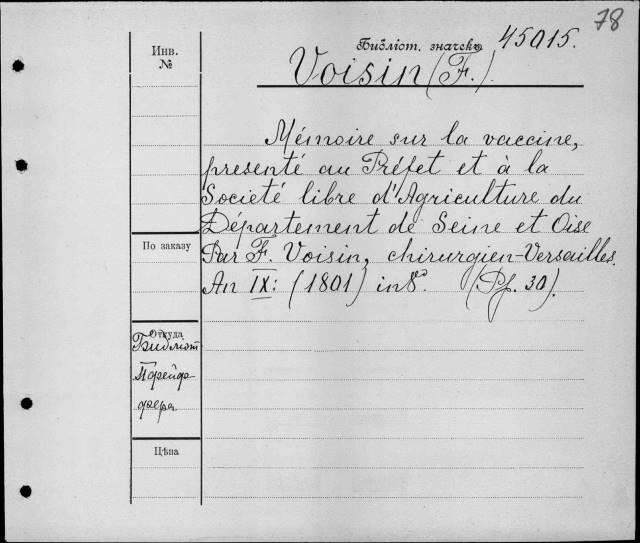 78
Инв.
№
Библіот. значекъ 45015.
Voisin (F.).
Mémoire sur la vaccine,
presenté au Préfet et à la
Société libre d'Agriculture du
Département de Seine et Oise
Par F. Voisin, chirurgien-Versailles.
По заказу
An IX: (1801) in 8º. (Pf. 30).
Откуда
Библіот
Порейд-
фера
Цѣна